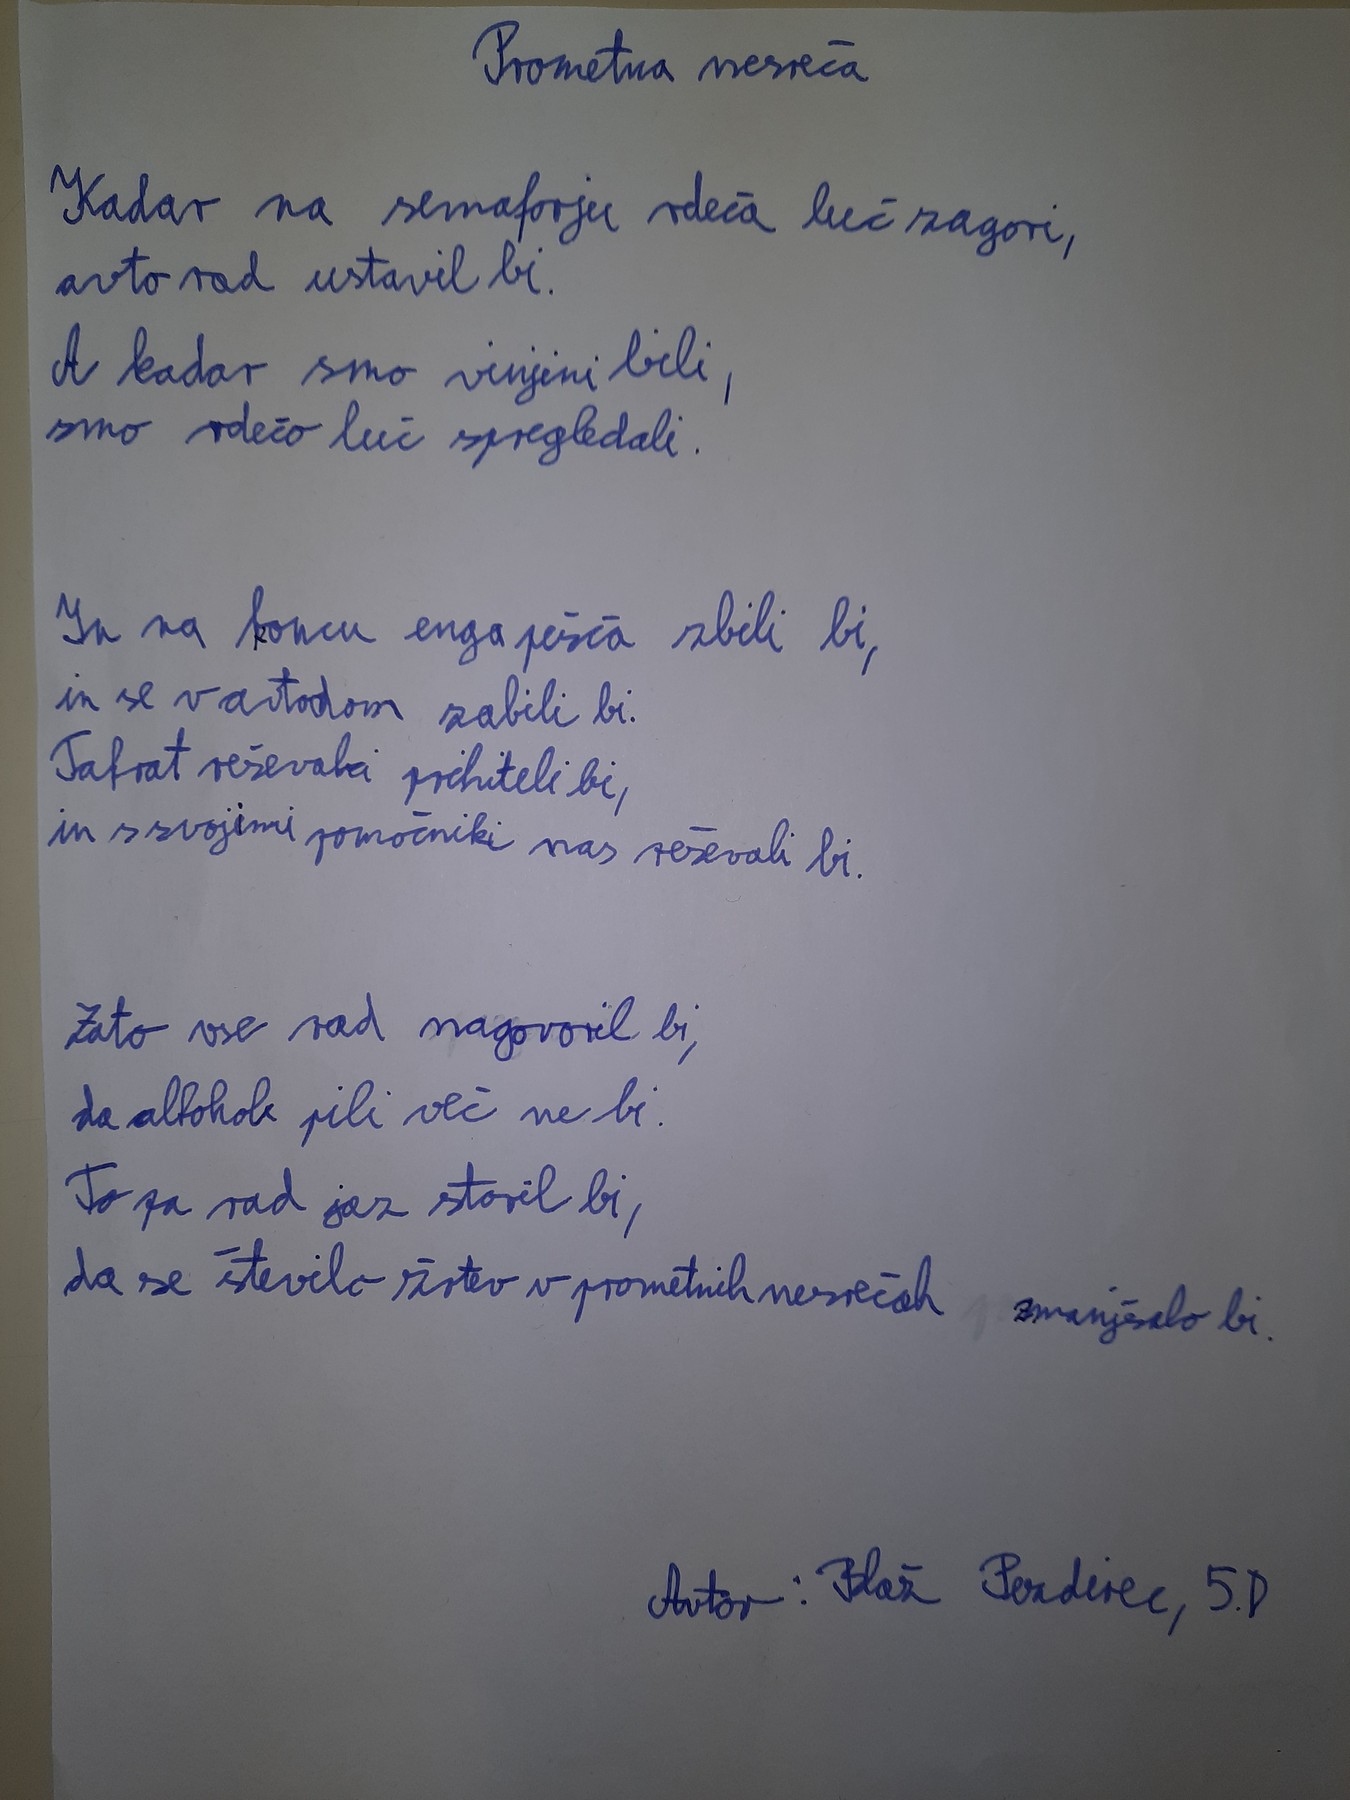 Prometna nesreča
Kadar na semaforju rdeča luč zagori,
avto rad ustavil bi.
A kadar smo vinjeni bili,
smo rdečo luč spregledali.
In na koncu enga pešča zbili bi,
in se v avtodom zabili bi.
Takrat reševalci prihiteli bi,
in s svojimi pomočniki nas reševali bi.
Zato vse rad nagovoril bi,
da alkohola pili več ne bi.
To pa rad jaz storil bi,
da se število žrtev v prometnih nesrečah zmanjšalo bi.
Avtor: Blaž Pezdirec, 5.D